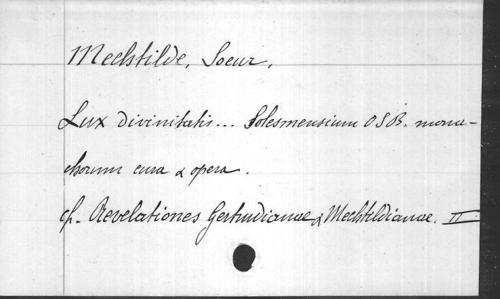 Mechtilde, Soeur,
Lux divinitatis... Solesmensium O S B. mona-
chorum cura & opera.
cf. Revelationes Gertrudianae & Mechtildianae. II